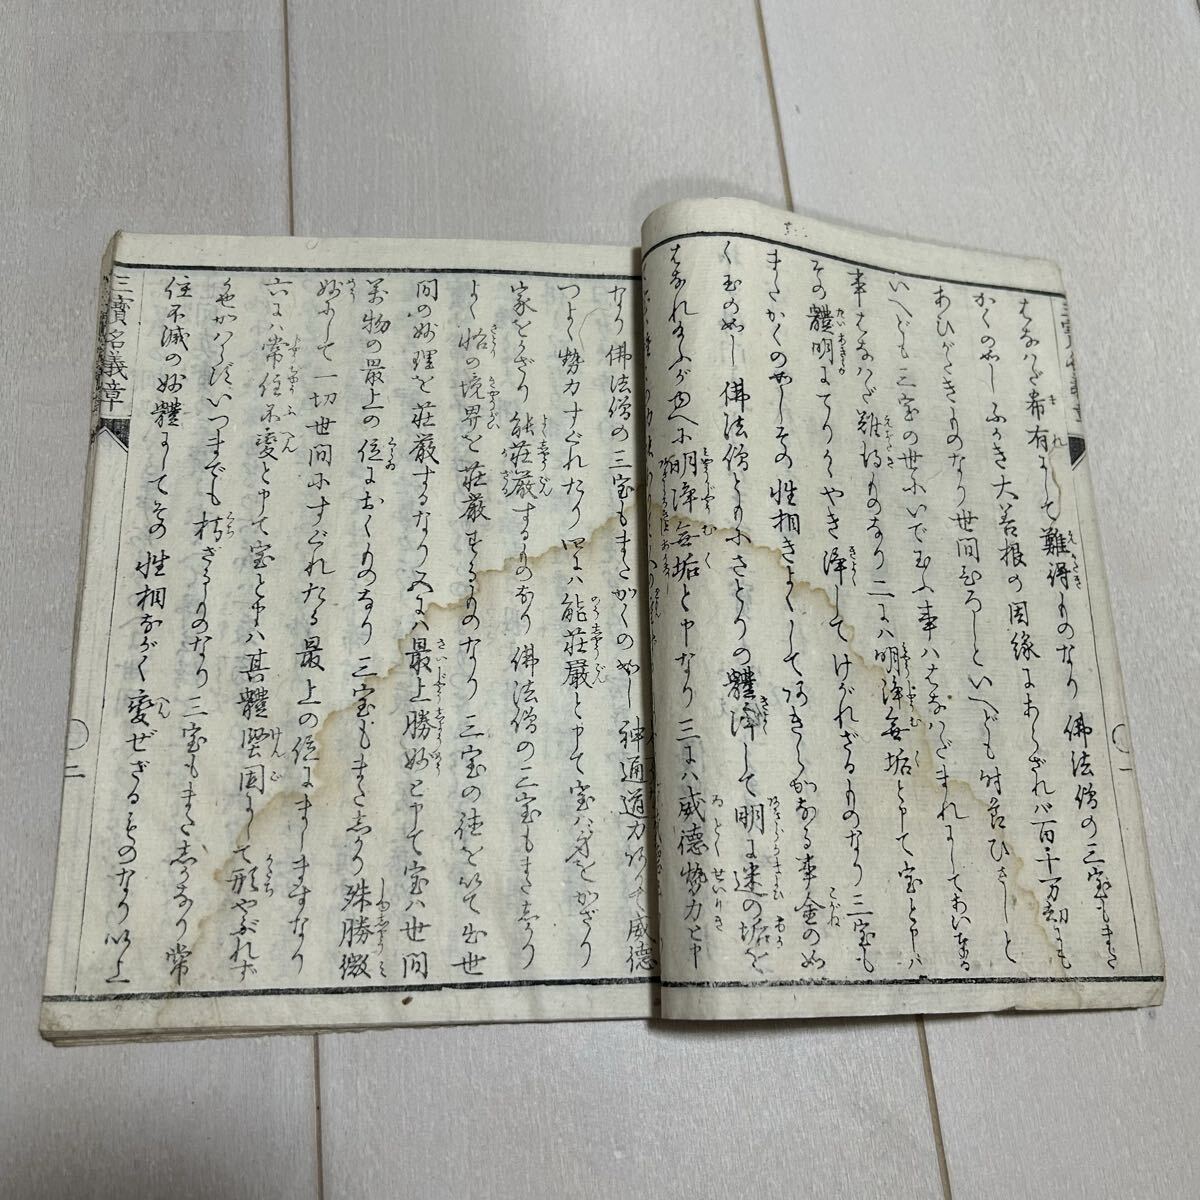 はなハだ希有にして難得ものなり 佛法僧の三宝もまた
かくのごとしふかき大善根の因縁にあらざれバ百千万劫にも
あひがたきものなり世間ひろしといへども時節ひさしと
いへども三宝の世にいでたまふ事ハはなハだまれにしてあいまみゆる
事はなハだ難得ものなり 二にハ明浄無垢と申て宝と申ハ
その體明にてりかゝやき浄してけがれざるものなり三宝も
またかくのごとしその性相きよくしてあきらかなる事金のごと
く玉のごとし佛法僧ともにさとりの體浄して明に迷の垢を
はなれたまふがゆへに明浄無垢と申なり 三にハ威徳勢力と申
なり 佛法僧の三宝もまたかくのごとし神通道力ありて威徳
つよく勢力すぐれたり 四にハ能荘厳と申て宝ハ身をかざり
家をかざり能荘厳するものなり 佛法僧の三宝もまたしかり
よく悟の境界を荘厳するものなり 三宝の徳を以て出世
間の妙理を荘厳するなり 五にハ最上勝妙と申て宝ハ世間
万物の最上の位におくものなり 三宝もまたしかり殊勝微
妙にして一切世間にすぐれたる最上の位にましますなり
六にハ常住不変と申て宝と申ハ其體堅固にして形やぶれず
色かハらずいつまでも朽ざるものなり 三宝もまたしかなり常
住不滅の妙體にしてその性相ながく変ぜざるものなり以上
三寶名義章
二